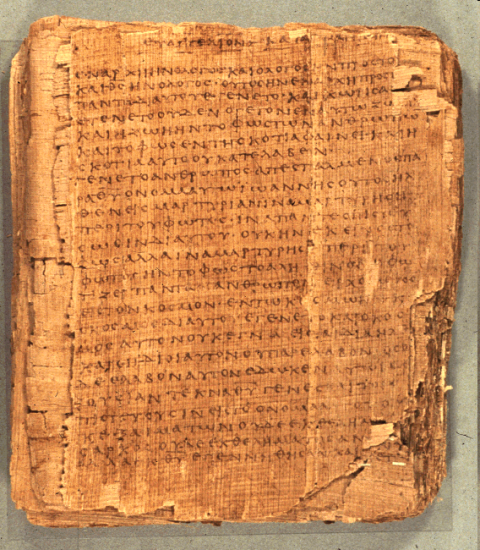 ΕΥΑΓΓΕΛΙΟΝ ΚΑ
ΕΝ ΑΡΧΗ ΗΝ Ο ΛΟΓΟΣ ΚΑΙ Ο ΛΟΓΟΣ ΗΝ ΠΡΟΣ ΤΟ
ΚΑΙ ΘΣ ΗΝ Ο ΛΟΓΟΣ ΟΥΤΟΣ ΗΝ ΕΝ ΑΡΧΗ ΠΡΟΣ
ΠΑΝΤΑ ΔΙ ΑΥΤΟΥ ΕΓΕΝΕΤΟ ΚΑΙ ΧΩΡΙΣ
ΕΓΕΝΕΤΟ ΟΥΔΕΝ Ο ΓΕΓΟΝΕΝ ΕΝ ΑΥΤΩ ΖΩ
ΚΑΙ Η ΖΩΗ ΗΝ ΤΟ ΦΩΣ ΤΩΝ ΑΝΘΡΩΠΩ
ΚΑΙ ΤΟ ΦΩΣ ΕΝ ΤΗ ΣΚΟΤΙΑ ΦΑΙΝΕΙ ΚΑΙ Η
ΣΚΟΤΙΑ ΑΥΤΟ ΟΥ ΚΑΤΕΛΑΒΕΝ
ΕΓΕΝΕΤΟ ΑΝΘΡΩΠΟΣ ΑΠΕΣΤΑΛΜΕΝΟΣ ΠΑ
ΡΑ ΘΥ ΟΝΟΜΑ ΑΥΤΩ ΙΩΑΝΝΗΣ ΟΥΤΟΣ ΗΛ
ΘΕΝ ΕΙΣ ΜΑΡΤΥΡΙΑΝ ΙΝΑ ΜΑΡΤΥΡΗΣΗ
ΠΕΡΙ ΤΟΥ ΦΩΤΟΣ ΙΝΑ ΠΑΝΤΕΣ ΠΙΣΤΕΥ
ΣΩΣΙΝ ΔΙ ΑΥΤΟΥ ΟΥΚ ΗΝ ΕΚΕΙΝΟΣ ΤΟ
ΦΩΣ ΑΛΛΑ ΙΝΑ ΜΑΡΤΥΡΗΣΗ ΠΕΡΙ ΤΟΥ
ΦΩΤΟΣ ΗΝ ΤΟ ΦΩΣ ΤΟ ΑΛΗΘΙΝΟΝ Ο ΦΩ
ΤΙΖΕΙ ΠΑΝΤΑ ΑΝΘΡΩΠΟΝ
ΕΙΣ ΤΟΝ ΚΟΣΜΟΝ ΕΝ ΤΩ ΚΟΣΜΩ ΗΝ
ΚΟΣΜΟΣ ΔΙ ΑΥΤΟΥ ΕΓΕΝΕΤΟ ΚΑΙ Ο ΚΟΣ
ΜΟΣ ΑΥΤΟΝ ΟΥΚ ΕΓΝΩ ΕΙΣ ΤΑ ΙΔΙΑ ΗΛ
ΚΑΙ ΟΙ ΙΔΙΟΙ ΑΥΤΟΝ ΟΥ ΠΑΡΕΛΑΒΟΝ ΟΣΟΙ
ΔΕ ΕΛΑΒΟΝ ΑΥΤΟΝ ΕΔΩΚΕΝ ΑΥΤΟΙΣ Ε
ΞΟΥΣΙΑΝ ΤΕΚΝΑ ΘΥ ΓΕΝΕΣΘΑΙ ΤΟΙΣ
ΠΙΣΤΕΥΟΥΣΙΝ ΕΙΣ ΤΟ ΟΝΟΜΑ
ΟΥΚ ΕΞ ΑΙΜΑΤΩΝ ΟΥΔΕ ΕΚ ΘΕΛΗΜΑ
ΣΑΡΚΟΣ ΟΥΔΕ ΕΚ ΘΕΛΗΜΑΤΟΣ ΑΝ
ΕΓΕΝΝΗΘΗΣΑΝ